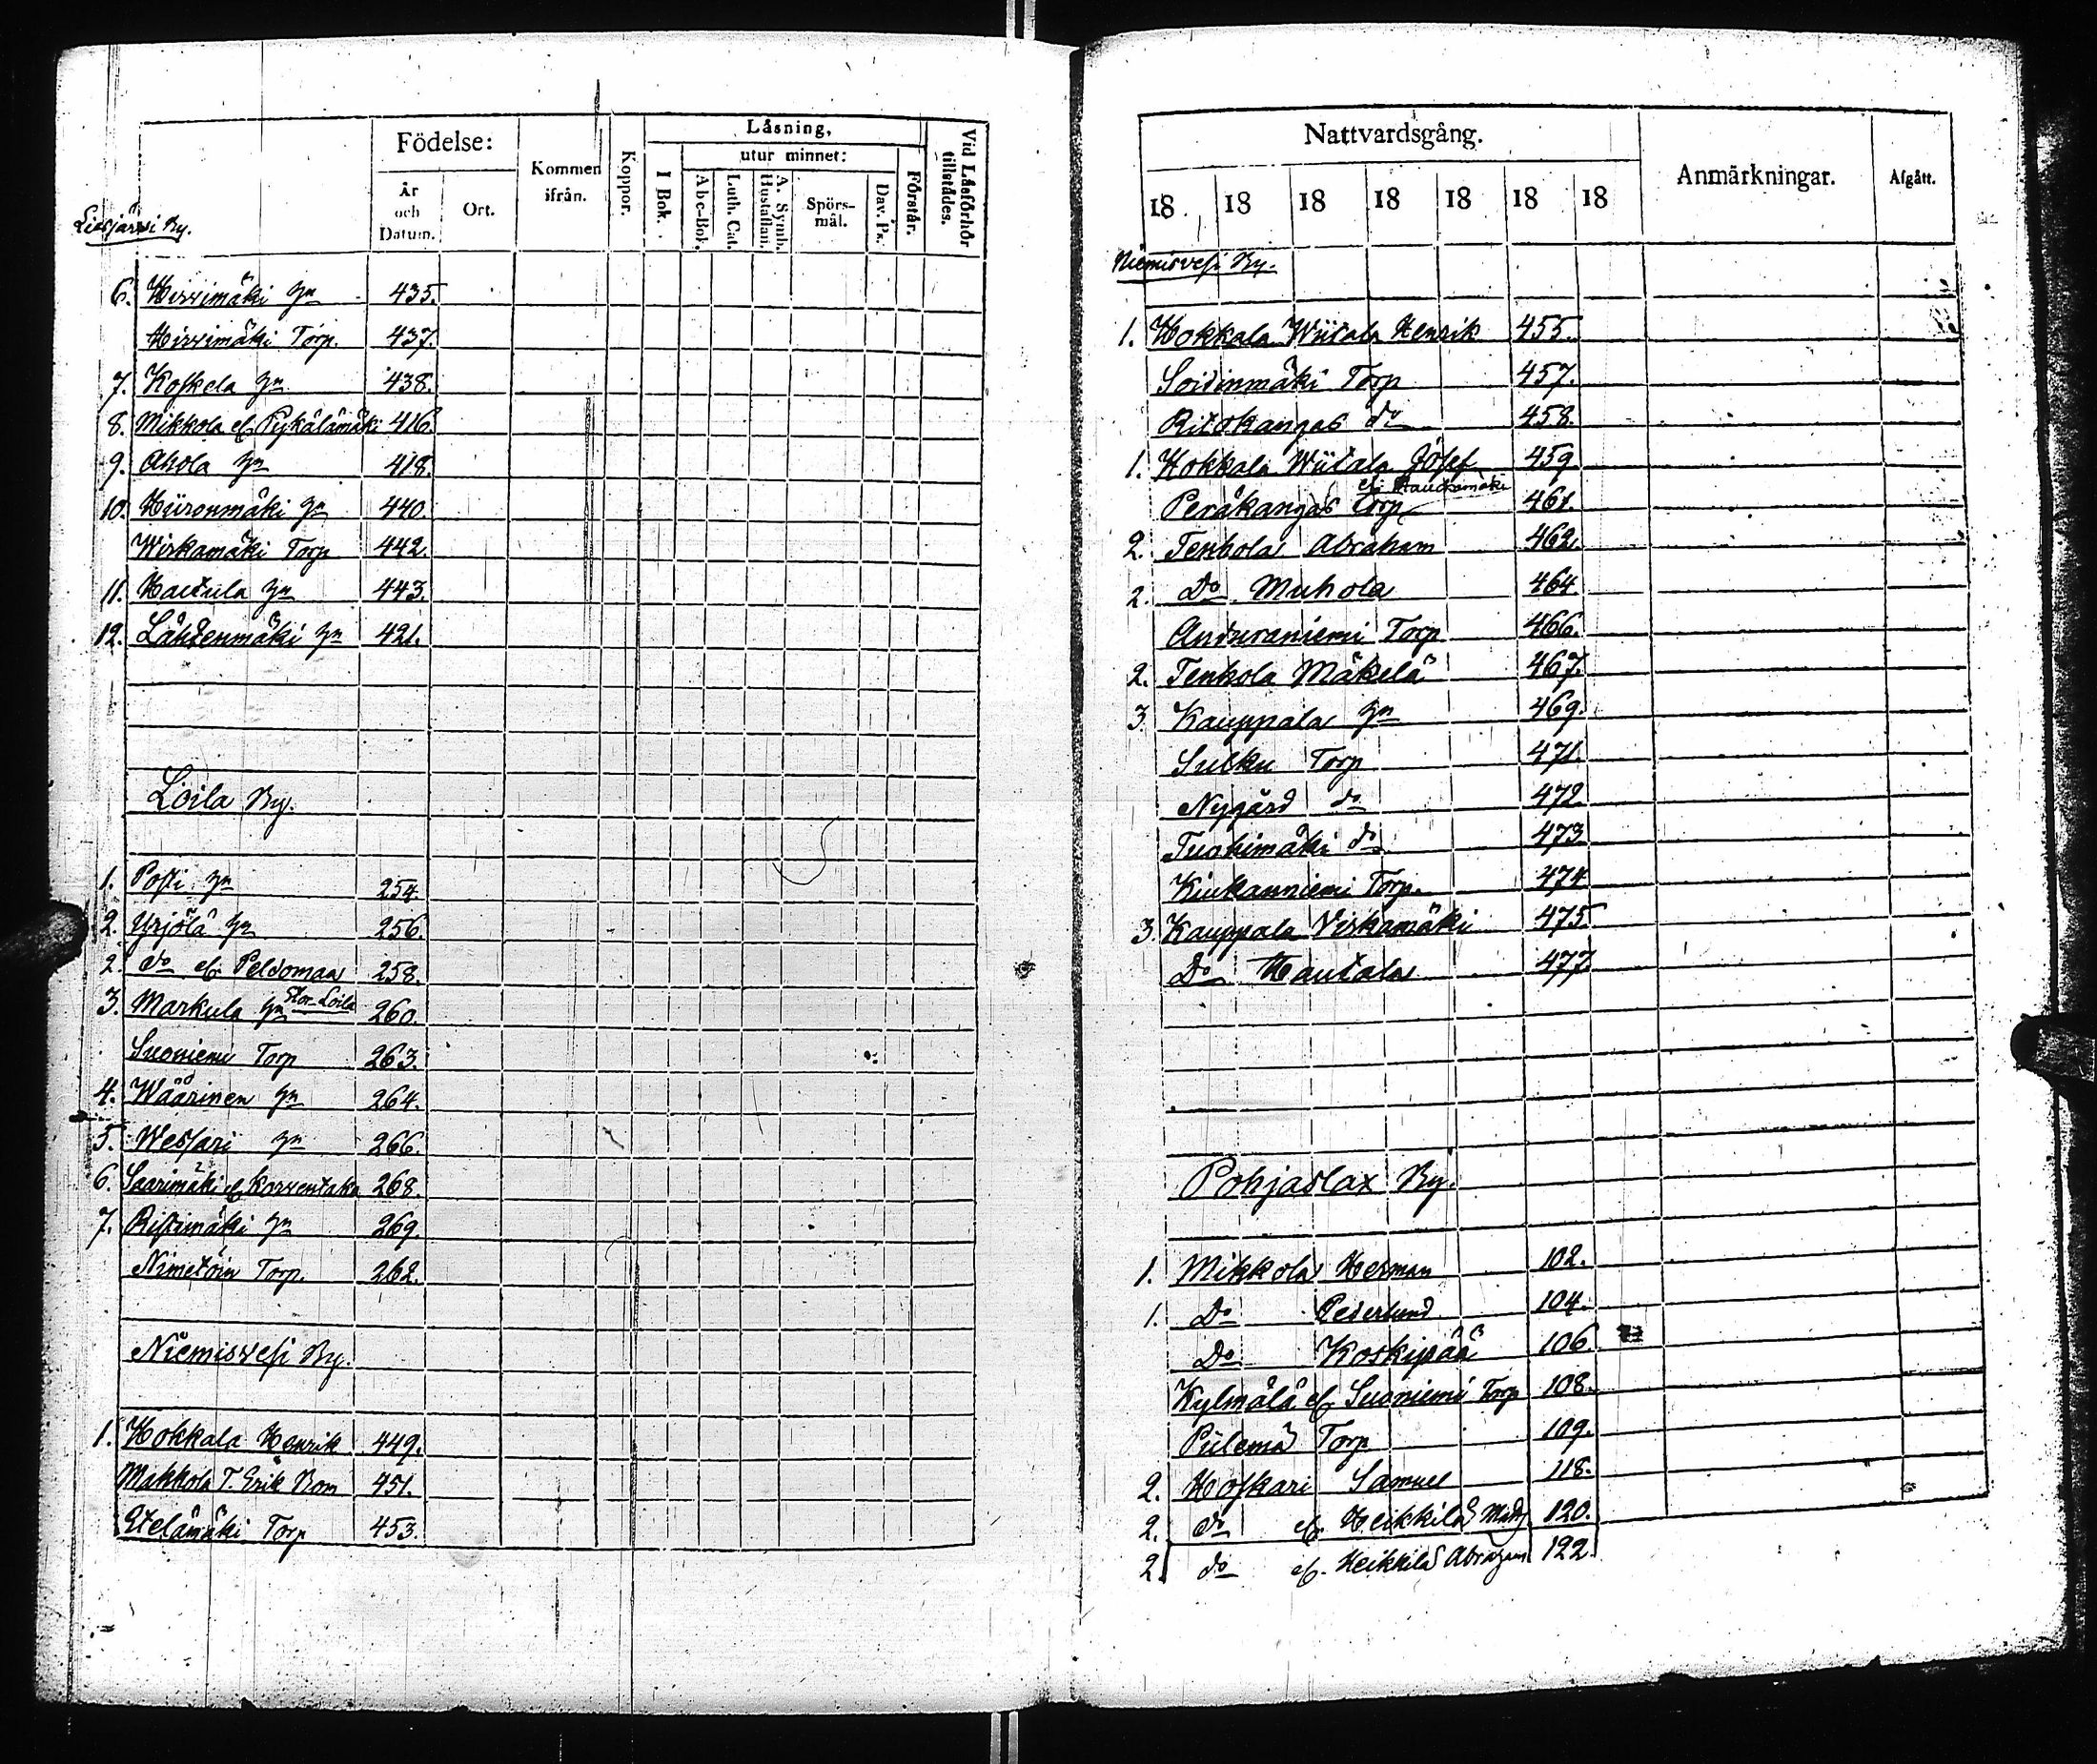 Födelse:
Kommen ifrån.
Koppor.
Låsning,
utur minnet:
Vid Låsförhör tillstådes.
År och Datum.
Ort.
I Bok.
Abc-Bok.
Luth. Cat.
A. Symb. Hustaflan.
Spörs-mål.
Dav. Ps.
Förstår.
Liesjärvi By.
6. Hirsimäki hn 435.
Hirsimäki Torp. 437.
7. Koskela hn 438.
8. Mikkola el. Pykälämäki 416
9. Ahola hn 418.
10. Hiironmäki hn 440.
Wirkamäki Torp 442.
11. Hautula hn 443.
12. Låhteenmäki hn 421.
Loila By.
1. Posti hn 254.
2. Yrjölä hn 256.
2. do el. Peldomaa 258.
3. Markula hn Stor-Loila 260.
Suoniemi Torp 263.
4. Wäärinen hn 264.
5. Wessari hn 266.
6. Saarimäki el. Korventaka 268.
7. Ristimäki hn 269.
Nimetöin Torp. 262.
Niemisvesi By.
1. Hokkala Henrik 449.
Makkola T. Erik Bom 451.
Etelämäki Torp 453.
Nattvardsgång.
Anmärkningar.
Afgått.
18 18 18 18 18 18 18
Niemisvesi By.
1. Hokkala Wiitala Henrik 455.
Soidinmäki Torp 457.
Ritokangas do 458.
1. Hokkala Wiitala Josef 459
Peräkangas Torp 461.
2. Tenhola Abraham 462.
2. Do Muhola 464.
Anduraniemi Torp 466.
2. Tenhola Mäkelä 467.
3. Kauppala hn 469.
Sulku Torp 471.
Nygård do 472
Tuohimäki do 473
Kiukanniemi Torp. 474
3. Kauppala Virkamäki 475.
Do Hautala 477
Pohjaslax By.
1. Mikkola Herman 102.
1. Do Pederlund 104.
Do Koskipää 106
Kylmälä el Suoniemi Torp 108.
Piilemä Torp 109.
2. Hoskari Samuel 118.
2. do el. Heikkilä 120.
2. do el. Heikkilä Abraham 122.